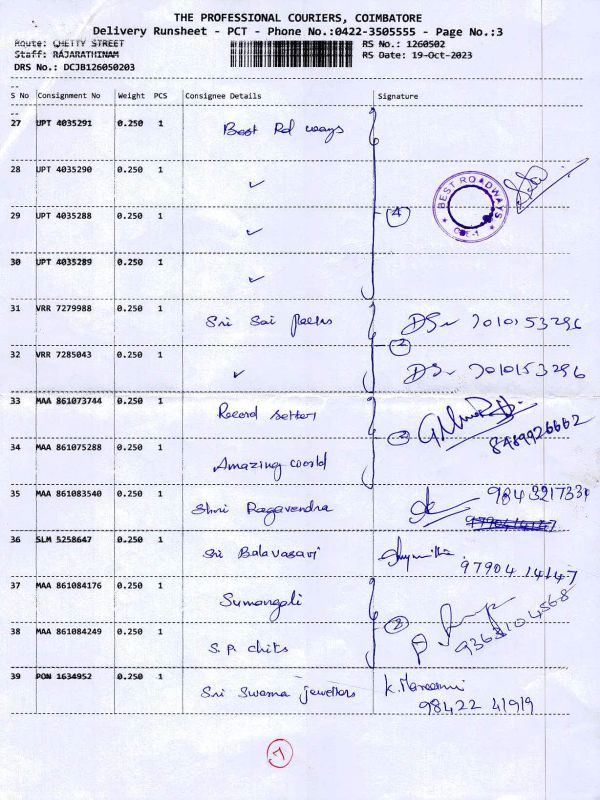 THE PROFESSIONAL COURIERS, COIMBATORE
Delivery Runsheet - PCT - Phone No.:0422-3505555 - Page No.:3
Route: CHETTY STREET RS No.: 1260502
Staff: RAJARATHINAM RS Date: 19-Oct-2023
DRS No.: DCJB126050203
S No Consignment No Weight PCS Consignee Details Signature
27 UPT 4035291 0.250 1 Best Rd ways
28 UPT 4035290 0.250 1 ✓
BEST ROADWAYS
CBE-1
29 UPT 4035288 0.250 1 ✓ 4
30 UPT 4035289 0.250 1 ✓
31 VRR 7279988 0.250 1 Sri Sai 7010153296
2
32 VRR 7285043 0.250 1 ✓ 7010153296
33 MAA 861073744 0.250 1 Record setters
2 8489926662
34 MAA 861075288 0.250 1 Amazing world
35 MAA 861083540 0.250 1 Shri Ragavendra
36 SLM 5258647 0.250 1 Sri Balavasavi 9790414147
37 MAA 861084176 0.250 1 Sumangali
38 MAA 861084249 0.250 1 S.P. chits
39 PON 1634952 0.250 1 Sri Swarna jewellers
98422 41919
7